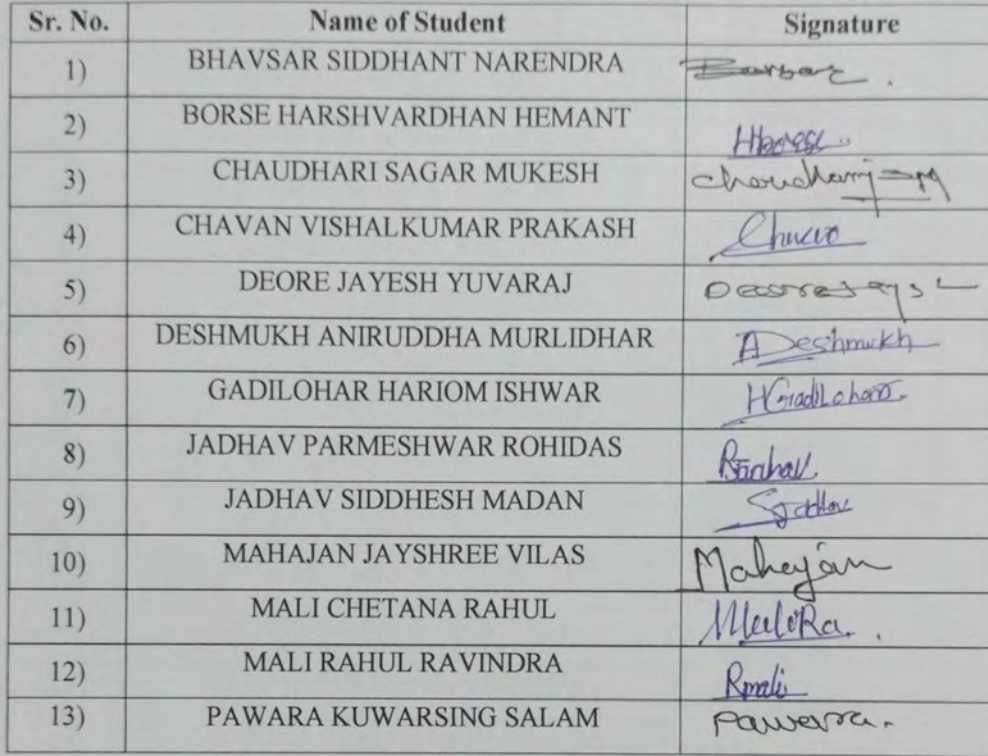 Sr. No. Name of Student Signature
1) BHAVSAR SIDDHANT NARENDRA
2) BORSE HARSHVARDHAN HEMANT
3) CHAUDHARI SAGAR MUKESH
4) CHAVAN VISHALKUMAR PRAKASH
5) DEORE JAYESH YUVARAJ
6) DESHMUKH ANIRUDDHA MURLIDHAR ADeshmukh
7) GADILOHAR HARIOM ISHWAR HGadilohar.
8) JADHAV PARMESHWAR ROHIDAS
9) JADHAV SIDDHESH MADAN
10) MAHAJAN JAYSHREE VILAS Mahajan
11) MALI CHETANA RAHUL
12) MALI RAHUL RAVINDRA Rmali
13) PAWARA KUWARSING SALAM Pawara.